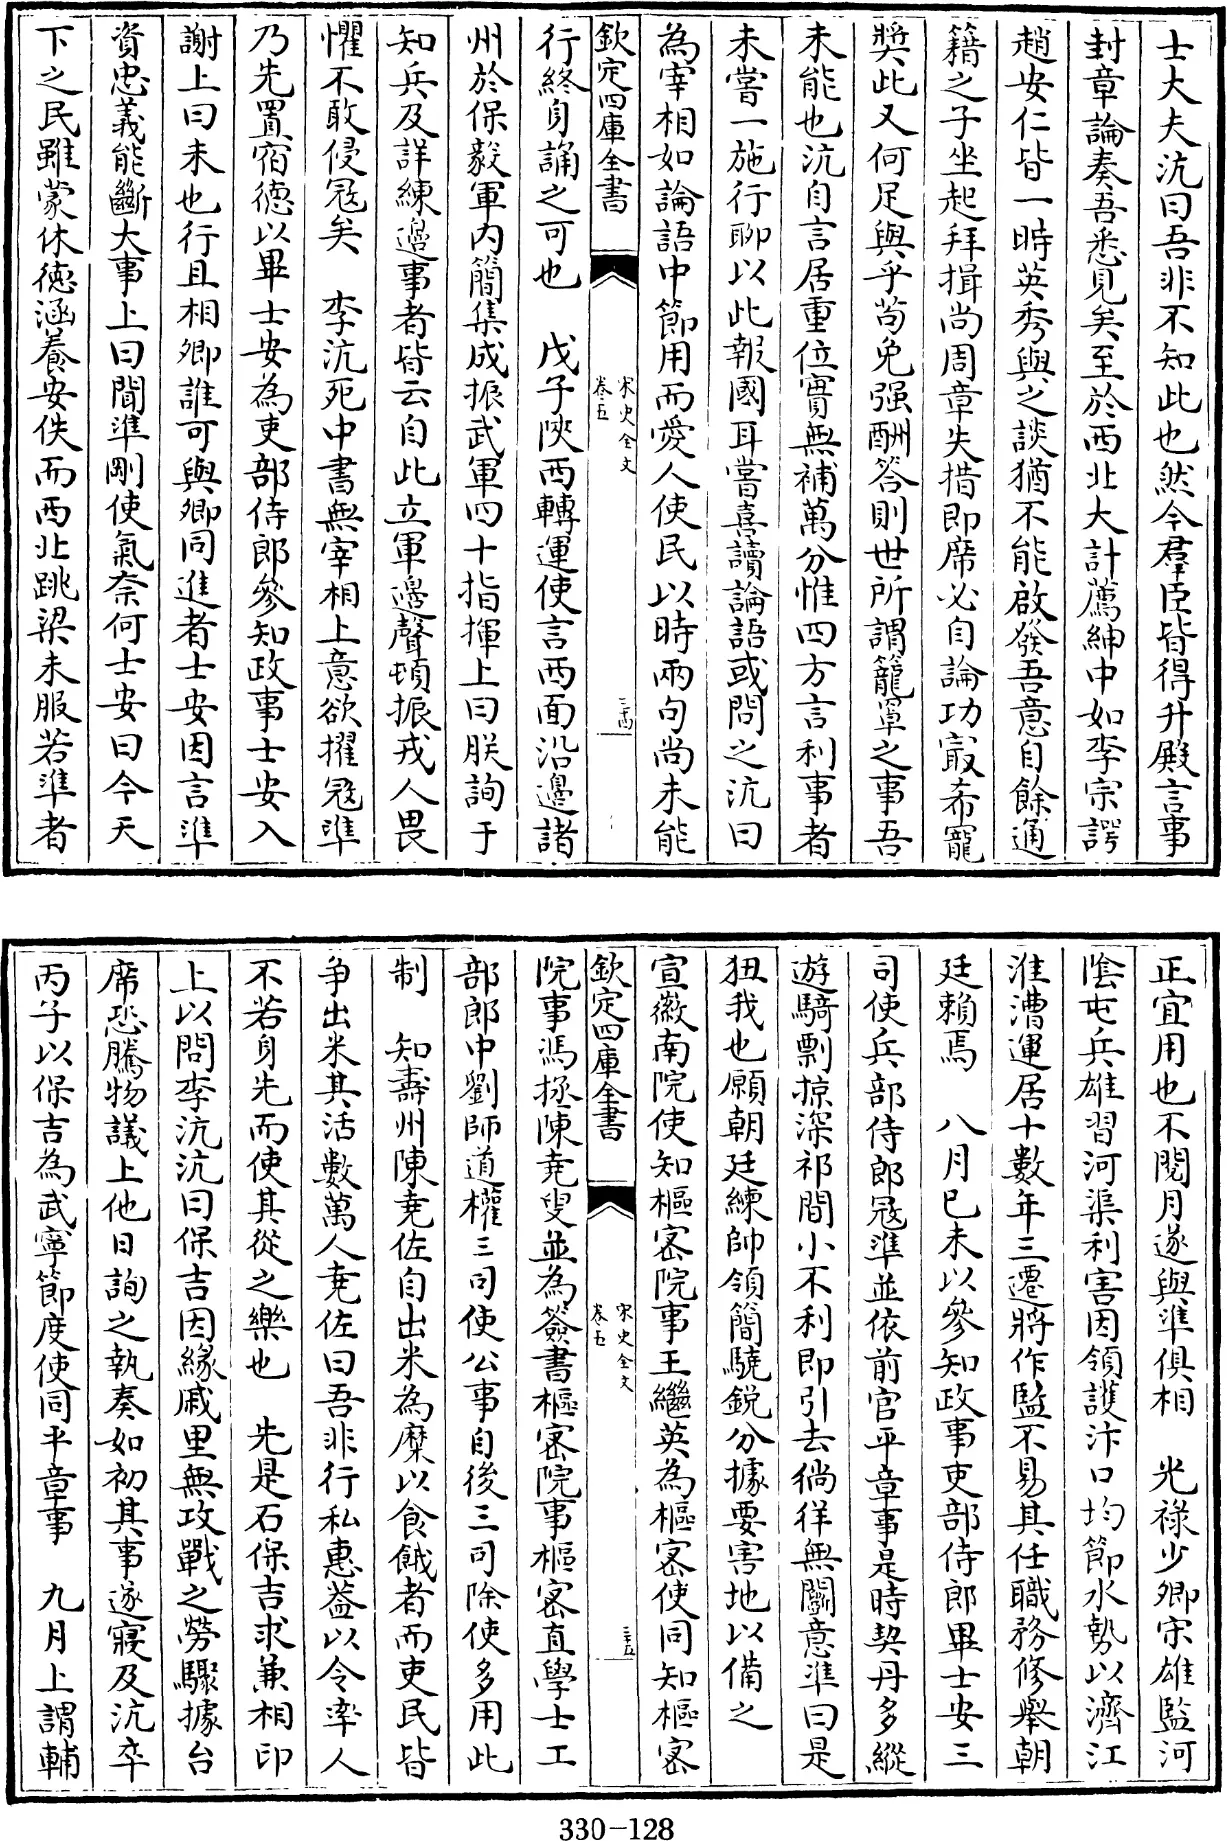 士大夫沆曰吾非不知此也然今羣臣皆得升殿言事
封章論奏吾悉見矣至於西北大計薦紳中如李宗諤
趙安仁皆一時英秀與之談猶不能啟發吾意自餘通
籍之子坐起拜揖尚周章失措即席必自論功最希寵
獎此又何足與乎苟免强酬答則世所謂籠罩之事吾
未能也沆自言居重位實無補萬分惟四方言利事者
未嘗一施行聊以此報國耳嘗喜讀論語或問之沆曰
為宰相如論語中節用而愛人使民以時兩句尚未能
欽定四庫全書
宋史全文
卷五
三十四
行終身誦之可也　戊子陜西轉運使言西面沿邊諸
州於保毅軍内簡集成振武軍四十指揮上曰朕詢于
知兵及詳練邊事者皆云自此立軍邊聲頓振戎人畏
懼不敢侵冦矣　李沆死中書無宰相上意欲擢冦準
乃先置宿德以畢士安為吏部侍郎參知政事士安入
謝上曰未也行且相卿誰可與卿同進者士安因言準
資忠義能斷大事上曰聞準剛使氣奈何士安曰今天
下之民雖蒙休德涵養安佚而西北跳梁未服若準者
正宜用也不閱月遂與準俱相　光祿少卿宋雄監河
隂屯兵雄習河渠利害因領護汴口均節水勢以濟江
淮漕運居十數年三遷將作監不易其任職務修舉朝
廷賴焉　八月已未以參知政事吏部侍郎畢士安三
司使兵部侍郎冦準並依前官平章事是時契丹多縱
遊騎剽掠深祁間小不利即引去徜徉無鬬意準曰是
狃我也願朝廷練帥領簡驍鋭分據要害地以備之
宣徽南院使知樞密院事王繼英為樞密使同知樞密
欽定四庫全書
宋史全文
卷五
三十五
院事馮拯陳堯叟並為簽書樞密院事樞密直學士工
部郎中劉師道權三司使公事自後三司除使多用此
制　知壽州陳堯佐自出米為糜以食餓者而吏民皆
争出米其活數萬人堯佐曰吾非行私惠葢以令率人
不若身先而使其從之樂也　先是石保吉求兼相印
上以問李沆沆曰保吉因緣戚里無攻戰之勞驟據台
席恐騰物議上他日詢之執奏如初其事遂寢及沆卒
丙子以保吉為武寧節度使同平章事　九月上謂輔
330-128